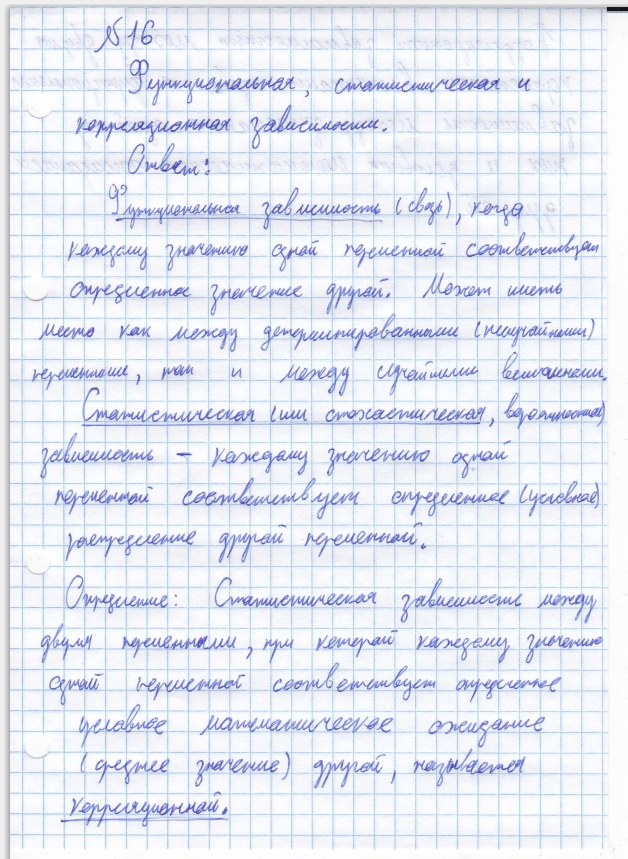 №16
Функциональная, статистическая и
корреляционная зависимости.
Ответ:
Функциональная зависимость (связь), когда
каждому значению одной переменной соответствует
определенное значение другой. Может иметь
место как между детерминированными (неслучайными)
переменными, так и между случайными величинами.
Статистическая (или стохастическая, вероятностная)
зависимость – каждому значению одной
переменной соответствует определенное (условное)
распределение другой переменной.
Определение: Статистическая зависимость между
двумя переменными, при которой каждому значению
одной переменной соответствует определенное
условное математическое ожидание
(среднее значение) другой, называется
корреляционной.